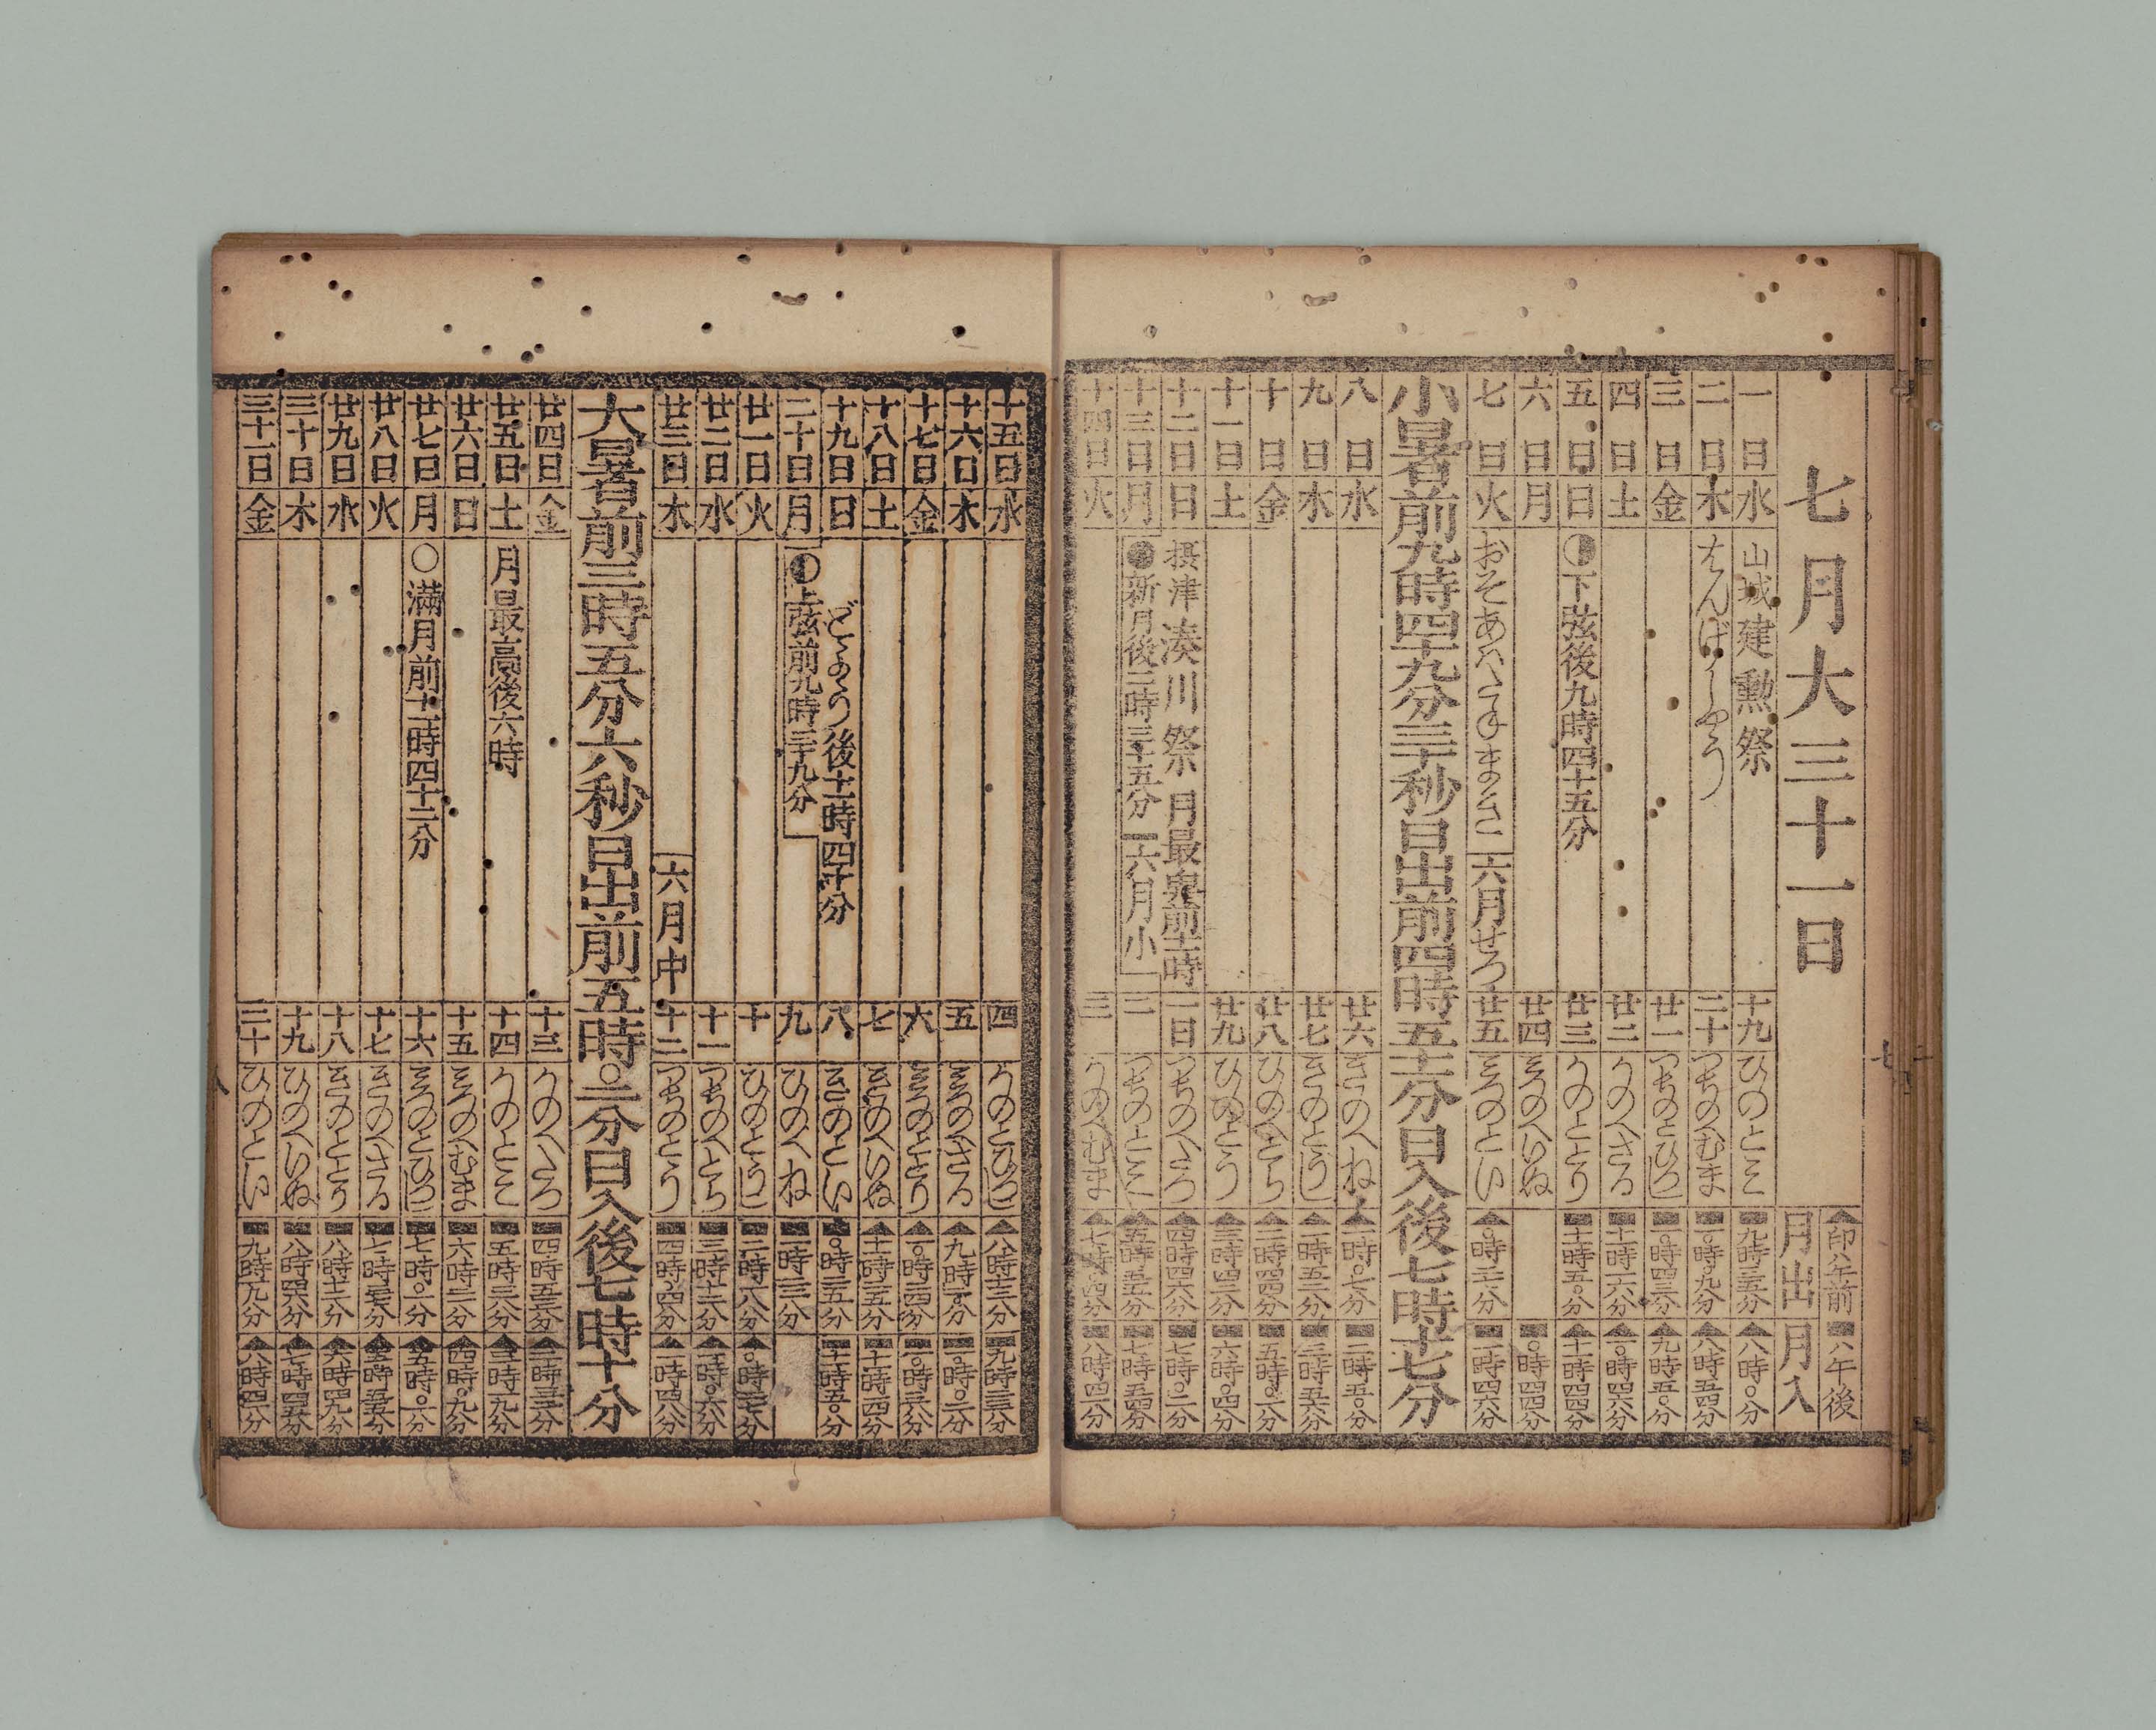 七月大三十一日
▲印ハ午前 ■ハ午後
月出 月入
一日 水 山城建勲祭 十九 ひのとみ ■九時三五分 ▲八時〇分
二日 木 はんげしやう 二十 つちのへむま ■一〇時〇九分 ▲八時五四分
三日 金 廿一 つちのとひつじ ■一〇時四三分 ▲九時五〇分
四日 土 廿二 かのへさる ■十一時一六分 ▲一〇時四六分
五日 日 下弦後九時四十五分 廿三 かのととり ■十一時五〇分 ▲十一時四四分
六日 月 廿四 みつのへいぬ ■〇時四四分
七日 火 おそあわたねまき 六月せつ 廿五 みつのとい ▲〇時二六分 ■一時四六分
小暑前九時四十九分三十秒日出前四時五十二分日入後七時十七分
八日 水 廿六 きのへね ▲一時〇七分 ■二時五〇分
九日 木 廿七 きのとうし ▲一時五二分 ■三時五六分
十日 金 廿八 ひのへとら ▲二時四四分 ■五時〇二分
十一日 土 廿九 ひのとう ▲三時四三分 ■六時〇四分
十二日 日 摂津湊川祭 月最卑前十一時 一日 つちのへたつ ▲四時四六分 ■七時〇二分
十三日 月 ●新月後二時三十五分 六月小 二 つちのとみ ▲五時五五分 ■七時五四分
十四日 火 三 かのへむま ▲七時〇四分 ■八時四一分
七
十五日 水 四 かのとひつじ ▲八時一三分 ■九時二三分
十六日 木 五 みつのへさる ▲九時二〇分 ■一〇時〇二分
十七日 金 六 みつのととり ▲一〇時二四分 ■一〇時三八分
十八日 土 七 きのへいぬ ▲十一時二五分 ■十一時一四分
十九日 日 どよう後十一時四十分 八 きのとい ■〇時二五分 ■十一時五〇分
二十日 月 上弦前九時三十九分 九 ひのへね ■一時二三分
廿一日 火 十 ひのとうし ■二時一八分 ▲〇時二七分
廿二日 水 十一 つちのへとら ■三時一三分 ▲一時〇六分
廿三日 木 六月中 十二 つちのとう ■四時〇四分 ▲一時四八分
大暑前三時五分六秒日出前五時〇二分日入後七時十分
廿四日 金 十三 かのへたつ ■四時五二分 ▲二時三三分
廿五日 土 月最高後六時 十四 かのとみ ■五時三八分 ▲三時一九分
廿六日 日 十五 みつのへむま ■六時二二分 ▲四時〇九分
廿七日 月 ○満月前十一時四十二分 十六 みつのとひつじ ■七時〇一分 ▲五時〇一分
廿八日 火 十七 きのへさる ■七時三七分 ▲五時五五分
廿九日 水 十八 きのととり ■八時一二分 ▲六時四九分
三十日 木 十九 ひのへいぬ ■八時四六分 ▲七時四五分
三十一日 金 二十 ひのとい ■九時一九分 ▲八時四一分